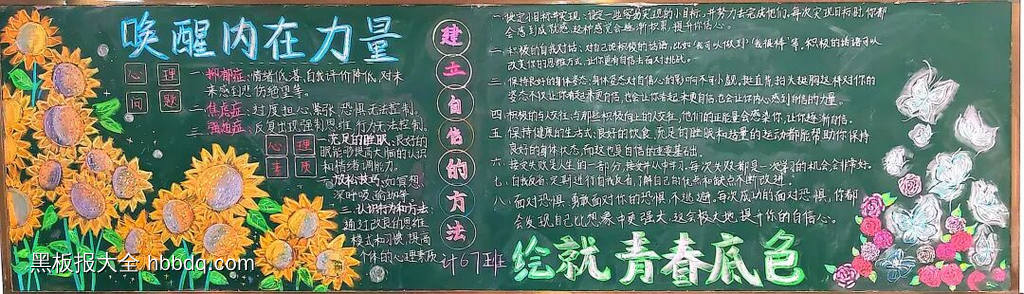 唤醒内在力量
心理
问题
一抑郁症:情绪低落,自我评价降低,对未
来感到悲伤绝望等。
二焦虑症:过度担心,紧张,恐惧无法控制。
三强迫症:反复出现强制思维,行为无法控制。
心理
素质
一充足的睡眠:良好的睡
眠能够提高大脑的认识
和情绪调能力。
二放松技巧:如冥想,
深呼吸
三.认识行为和方法:
通过改良的思维
模式和习惯,提高
个体的心理素质
建立自信的方法
一.设定小目标并实现:设定一些容易实现的小目标,并努力去完成他们,每次实现目标时,你都
会感到成就感,这种感觉会逐渐积累,提升你信心。
二.积极的自我对话:对自己说积极的话语,比如“我可以做到”“我很棒”等,积极的话语可以
改变你的思维方式,让你更有自信去面对挑战。
三.保持良好的身体姿态:身体姿态对自信心的影响不可小觑,挺直背抬头挺胸这样对你的
姿态不仅让你看起来更自信,也会让你看起来更自信,也会让你内心感到自信的力量。
四.积极的与人交往:与那些积极向上的人交往,他们的正能量会感染你,让你越渐自信。
五.保持健康的生方式:良好的饮食,充足的睡眠和适量的运动都能帮助你保持
良好的身体状态,而这也是自信的重要基础。
六.接受失败是人生的一部分,接受并从中学习,每次失败都是一次学习的机会会非常好。
七.自我反省:定期进行自我反省,了解自己的优点和缺点不断改进。
八.面对恐惧,勇敢面对你的恐惧,不逃避,每次成功的面对恐惧,你都
会发现自己比想象中更强大,这会极大地提升你的自信心。
计67班
绘就青春底色
黑板报大全 hbbdq.com